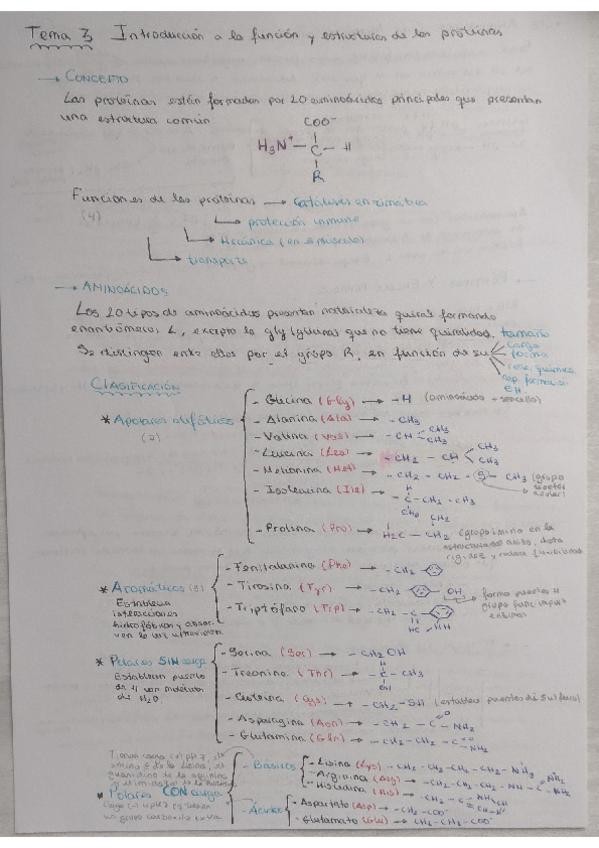 Tema 3 Introducción a la función y estructuras de las proteínas
→ CONCEPTO
Las proteínas están formadas por 20 aminoácidos principales que presentan
una estructura común
COO⁻
H₃N⁺ — C — H
R
Funciones de las proteínas → Catálisis enzimática
(4)
→ protección inmune
→ Mecánica (en músculo)
→ transporte
→ AMINOÁCIDOS
Los 20 tipos de aminoácidos presentan naturaleza quiral formando
enantiómeros L, excepto la gly (glicina) que no tiene quiralidad. tamaño
Se distinguen entre ellos por el grupo R, en función de su carga
forma
reac. química
cap. formación
CLASIFICACIÓN
* Apolares alifáticos
(7)
- Glicina (Gly) → -H (aminoácido + sencillo)
- Alanina (Ala) → -CH₃
- Valina (Val) → -CH CH₃ CH₃
- Leucina (Leu) → -CH₂ - CH CH₃ CH₃
- Metionina (Met) → -CH₂ - CH₂ - S - CH₃ (grupo
- Isoleucina (Ile) → H -C-CH₂-CH₃ CH₃
- Prolina (Pro) → H₂C - CH₂ CH₂ (grupo imino en la
rigidez y reduce flexibilidad
* Aromáticos (3)
Establecen
interacciones
hidrofóbicas y absor-
ven la luz ultravioleta
- Fenilalanina (Phe) → -CH₂
- Tirosina (Tyr) → -CH₂ OH → forma puentes H
- Triptófano (Trp) → -CH₂ - C
HC NH
* Polares SIN carga
Establecen puente
de H con moléculas
de H₂O.
- Serina (Ser) → -CH₂OH
- Treonina (Thr) → H -C-CH₃ OH
- Cisteína (Cys) → -CH₂-SH (establece puentes disulfuro)
- Asparagina (Asn) → -CH₂ - C O NH₂
- Glutamina (Gln) → -CH₂-CH₂ - C O NH₂
* Polares CON carga
un grupo carboxilo extra
- Básicos
- Lisina (Lys) → -CH₂-CH₂-CH₂-CH₂-NH₃⁺
- Arginina (Arg) → -CH₂-CH₂-CH₂-NH-C-NH₂ NH₂
- Histidina (His) → -CH₂-C
- Ácidos
- Aspartato (Asp) → -CH₂-COO⁻
- Glutamato (Glu) → CH₂-CH₂-COO⁻